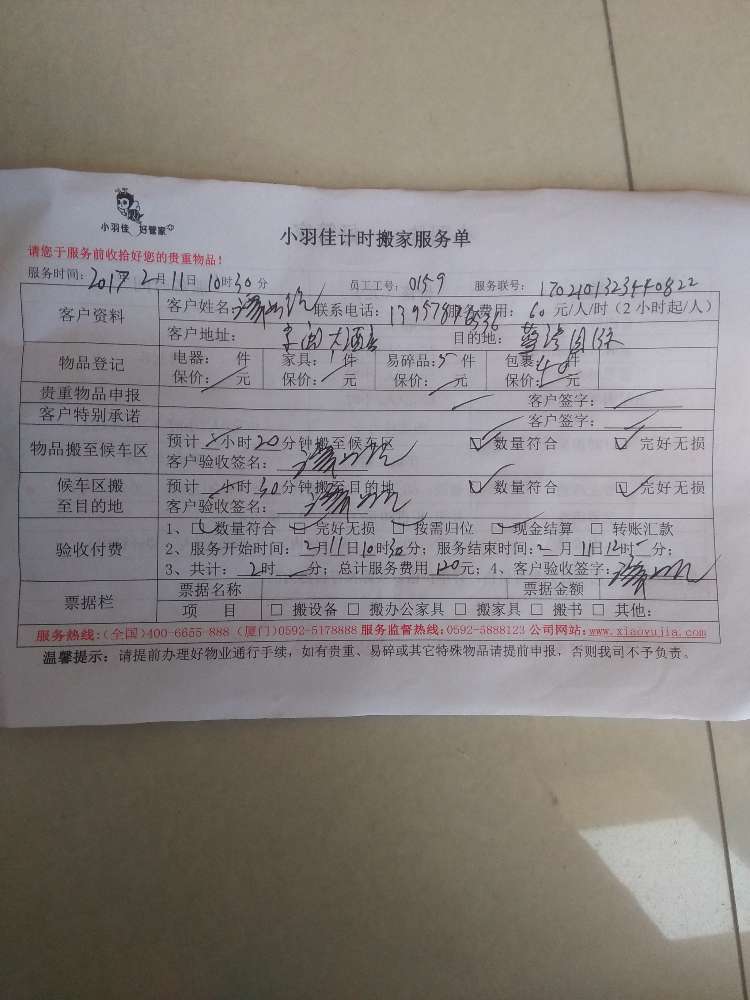 小羽佳 好管家
小羽佳计时搬家服务单
请您于服务前收拾好您的贵重物品！
服务时间：2017年2月11日10时30分 员工工号：0159 服务联号：1702101323440822
客户资料 客户姓名： 联系电话： 服务费用：60元/人/时（2小时起/人）
客户地址： 大酒店 目的地：
物品登记 电器： 件 家具：1件 易碎品：5件 包裹：40件
保价： 元 保价： 元 保价： 元 保价： 元
贵重物品申报 客户签字：
客户特别承诺 客户签字：
物品搬至候车区 预计 小时20分钟搬至候车区 ☑数量符合 ☑完好无损
客户验收签名：
候车区搬至目的地 预计 小时30分钟搬至目的地 ☑数量符合 ☑完好无损
客户验收签名：
验收付费 1、☑数量符合 ☑完好无损 ☑按需归位 ☑现金结算 □转账汇款
2、服务开始时间：2月11日10时30分；服务结束时间：2月11日12时5分；
3、共计：2时 分；总计服务费用120元；4、客户验收签字：
票据栏 票据名称 票据金额
项 目 □搬设备 □搬办公家具 □搬家具 □搬书 □其他：
服务热线：（全国）400-6655-888（厦门）0592-5178888 服务监督热线：0592-5888123 公司网站：www.xiaoyujia.com
温馨提示：请提前办理好物业通行手续，如有贵重、易碎或其它特殊物品请提前申报，否则我司不予负责。